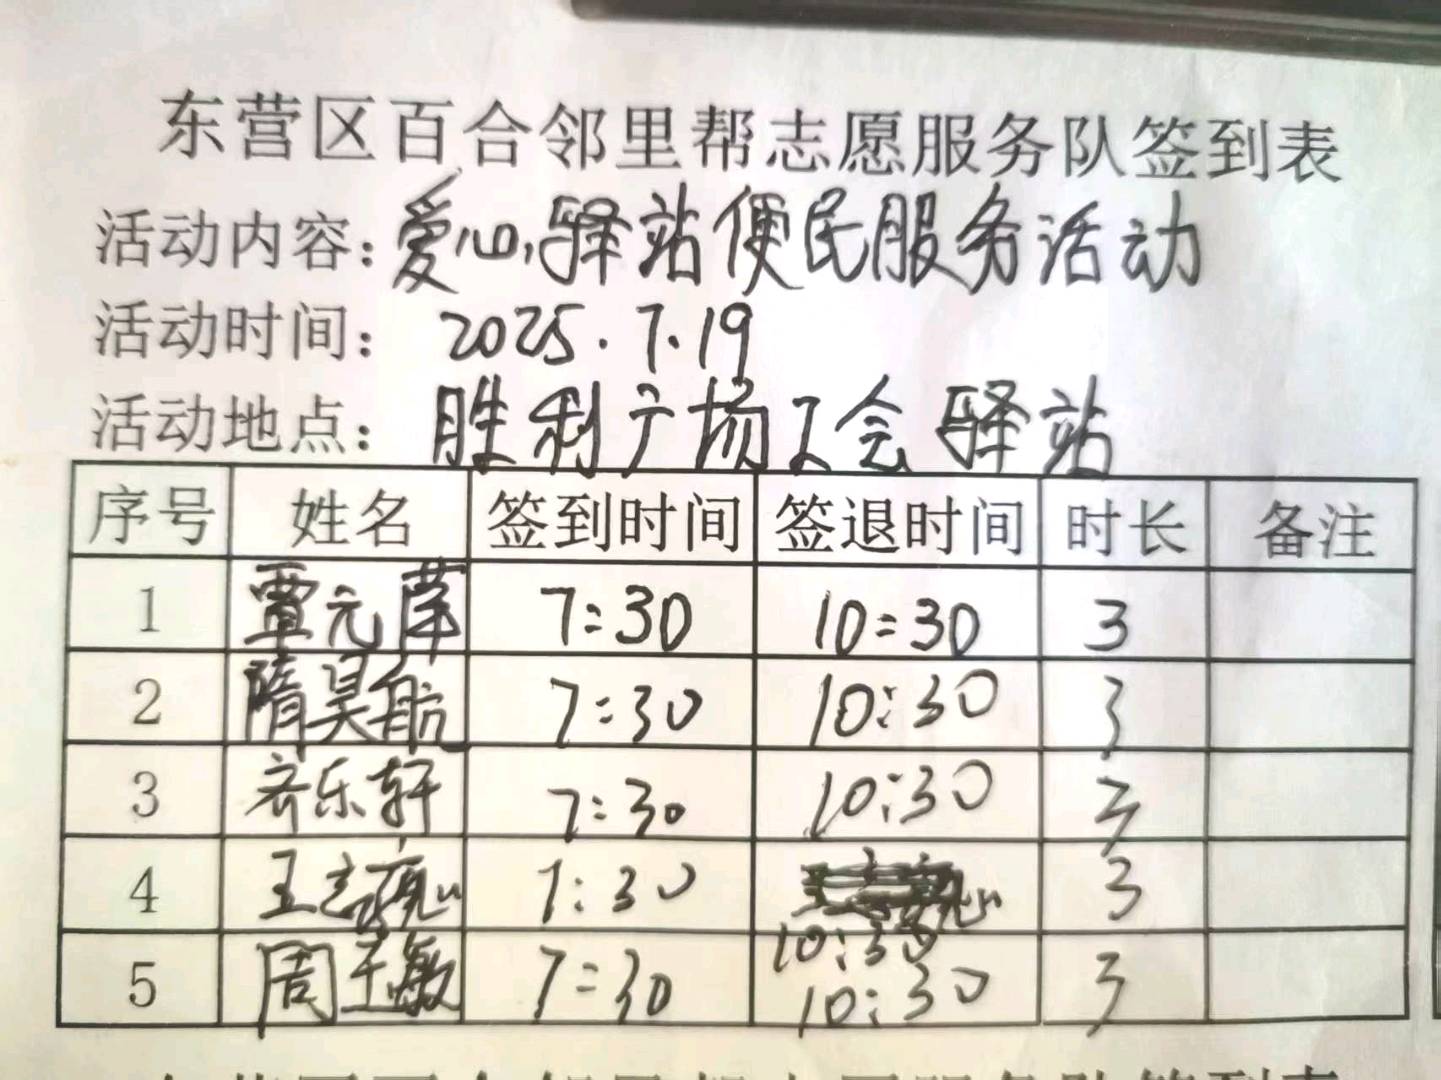 东营区百合邻里帮志愿服务队签到表
活动内容：爱心驿站便民服务活动
活动时间： 2025.7.19
活动地点： 胜利广场工会驿站
序号 姓名 签到时间 签退时间 时长 备注
1 覃元萍 7:30 10:30 3
2 隋昊航 7:30 10:30 3
3 齐乐轩 7:30 10:30 3
4 7:30 10:30 3
5 周玉敏 7:30 10:30 3